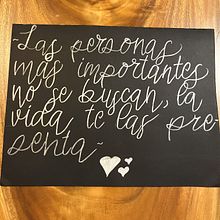 Las personas
más importantes
no se buscan, la
vida, te las pre-
senta~